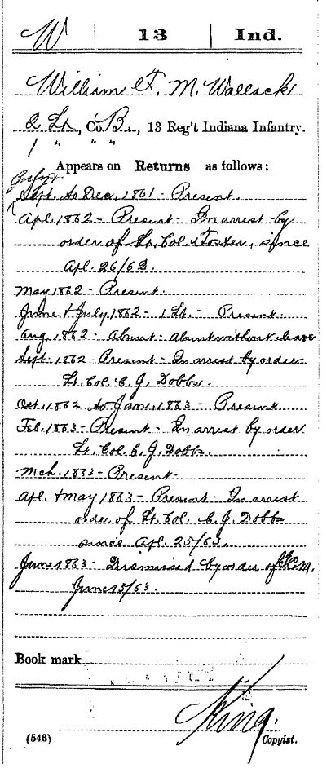 W | 13 | Ind.
William F. M. Wallack
2 Lt., Co. B., 13 Reg't Indiana Infantry.
1 " " "
Appears on Returns as follows:
Sept. to Dec. 1861 - Present.
Apl. 1862 - Present - In arrest by
order of Lt. Col. Foster, since
Apl. 26/62.
May 1862 - Present.
June & July 1862 - 1 Lt. - Present.
Aug. 1862 - Absent - Absent without leave
Sept. 1862 Present - In arrest by order
Lt. Col. C. J. Dobbs.
Oct. 1862 to Jan. 1863 - Present
Feb. 1863 - Present - In arrest by order
Lt. Col. C. J. Dobbs
Mch. 1863 - Present
Apl. & May 1863 - Present In arrest
order of Lt. Col. C. J. Dobbs
since Apl. 25/63.
June 1863 - Dismissed by order of
June 15/63.
Book mark
King
(546) Copyist.